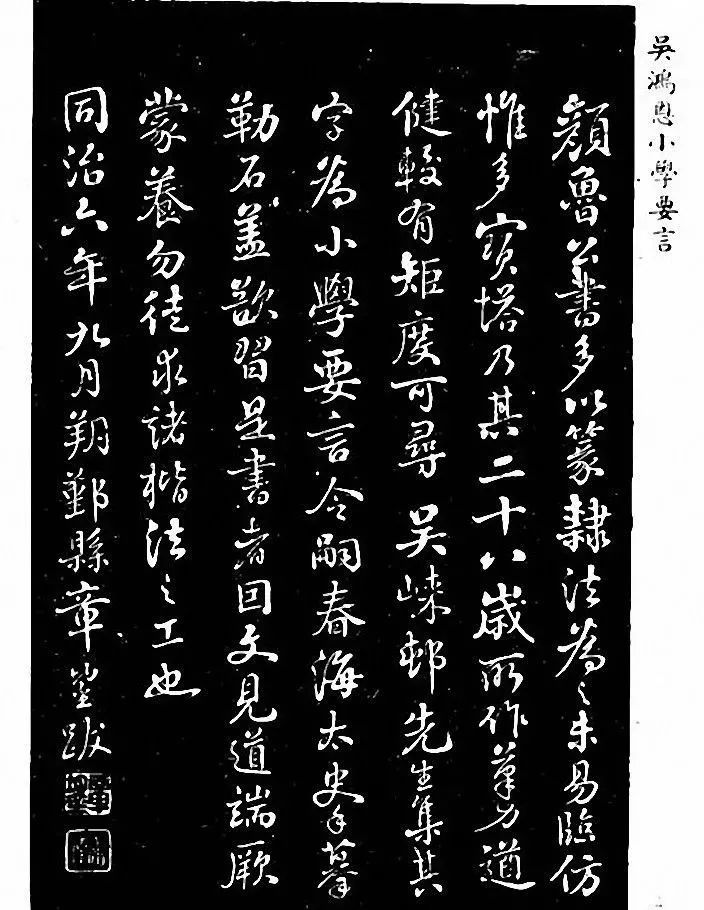 吳鴻恩小學要言
顏魯公書多以篆隸法為之未易臨仿
惟多寶塔乃其二十八歲所作筆力遒
健較有矩度可尋吳嵊邨先生集其
字為小學要言令嗣春海太史手摹
勒石蓋欲習是書者因文見道端厥
蒙養勿徒求諸楷法之工也
同治六年九月朔鄞縣章鋆跋